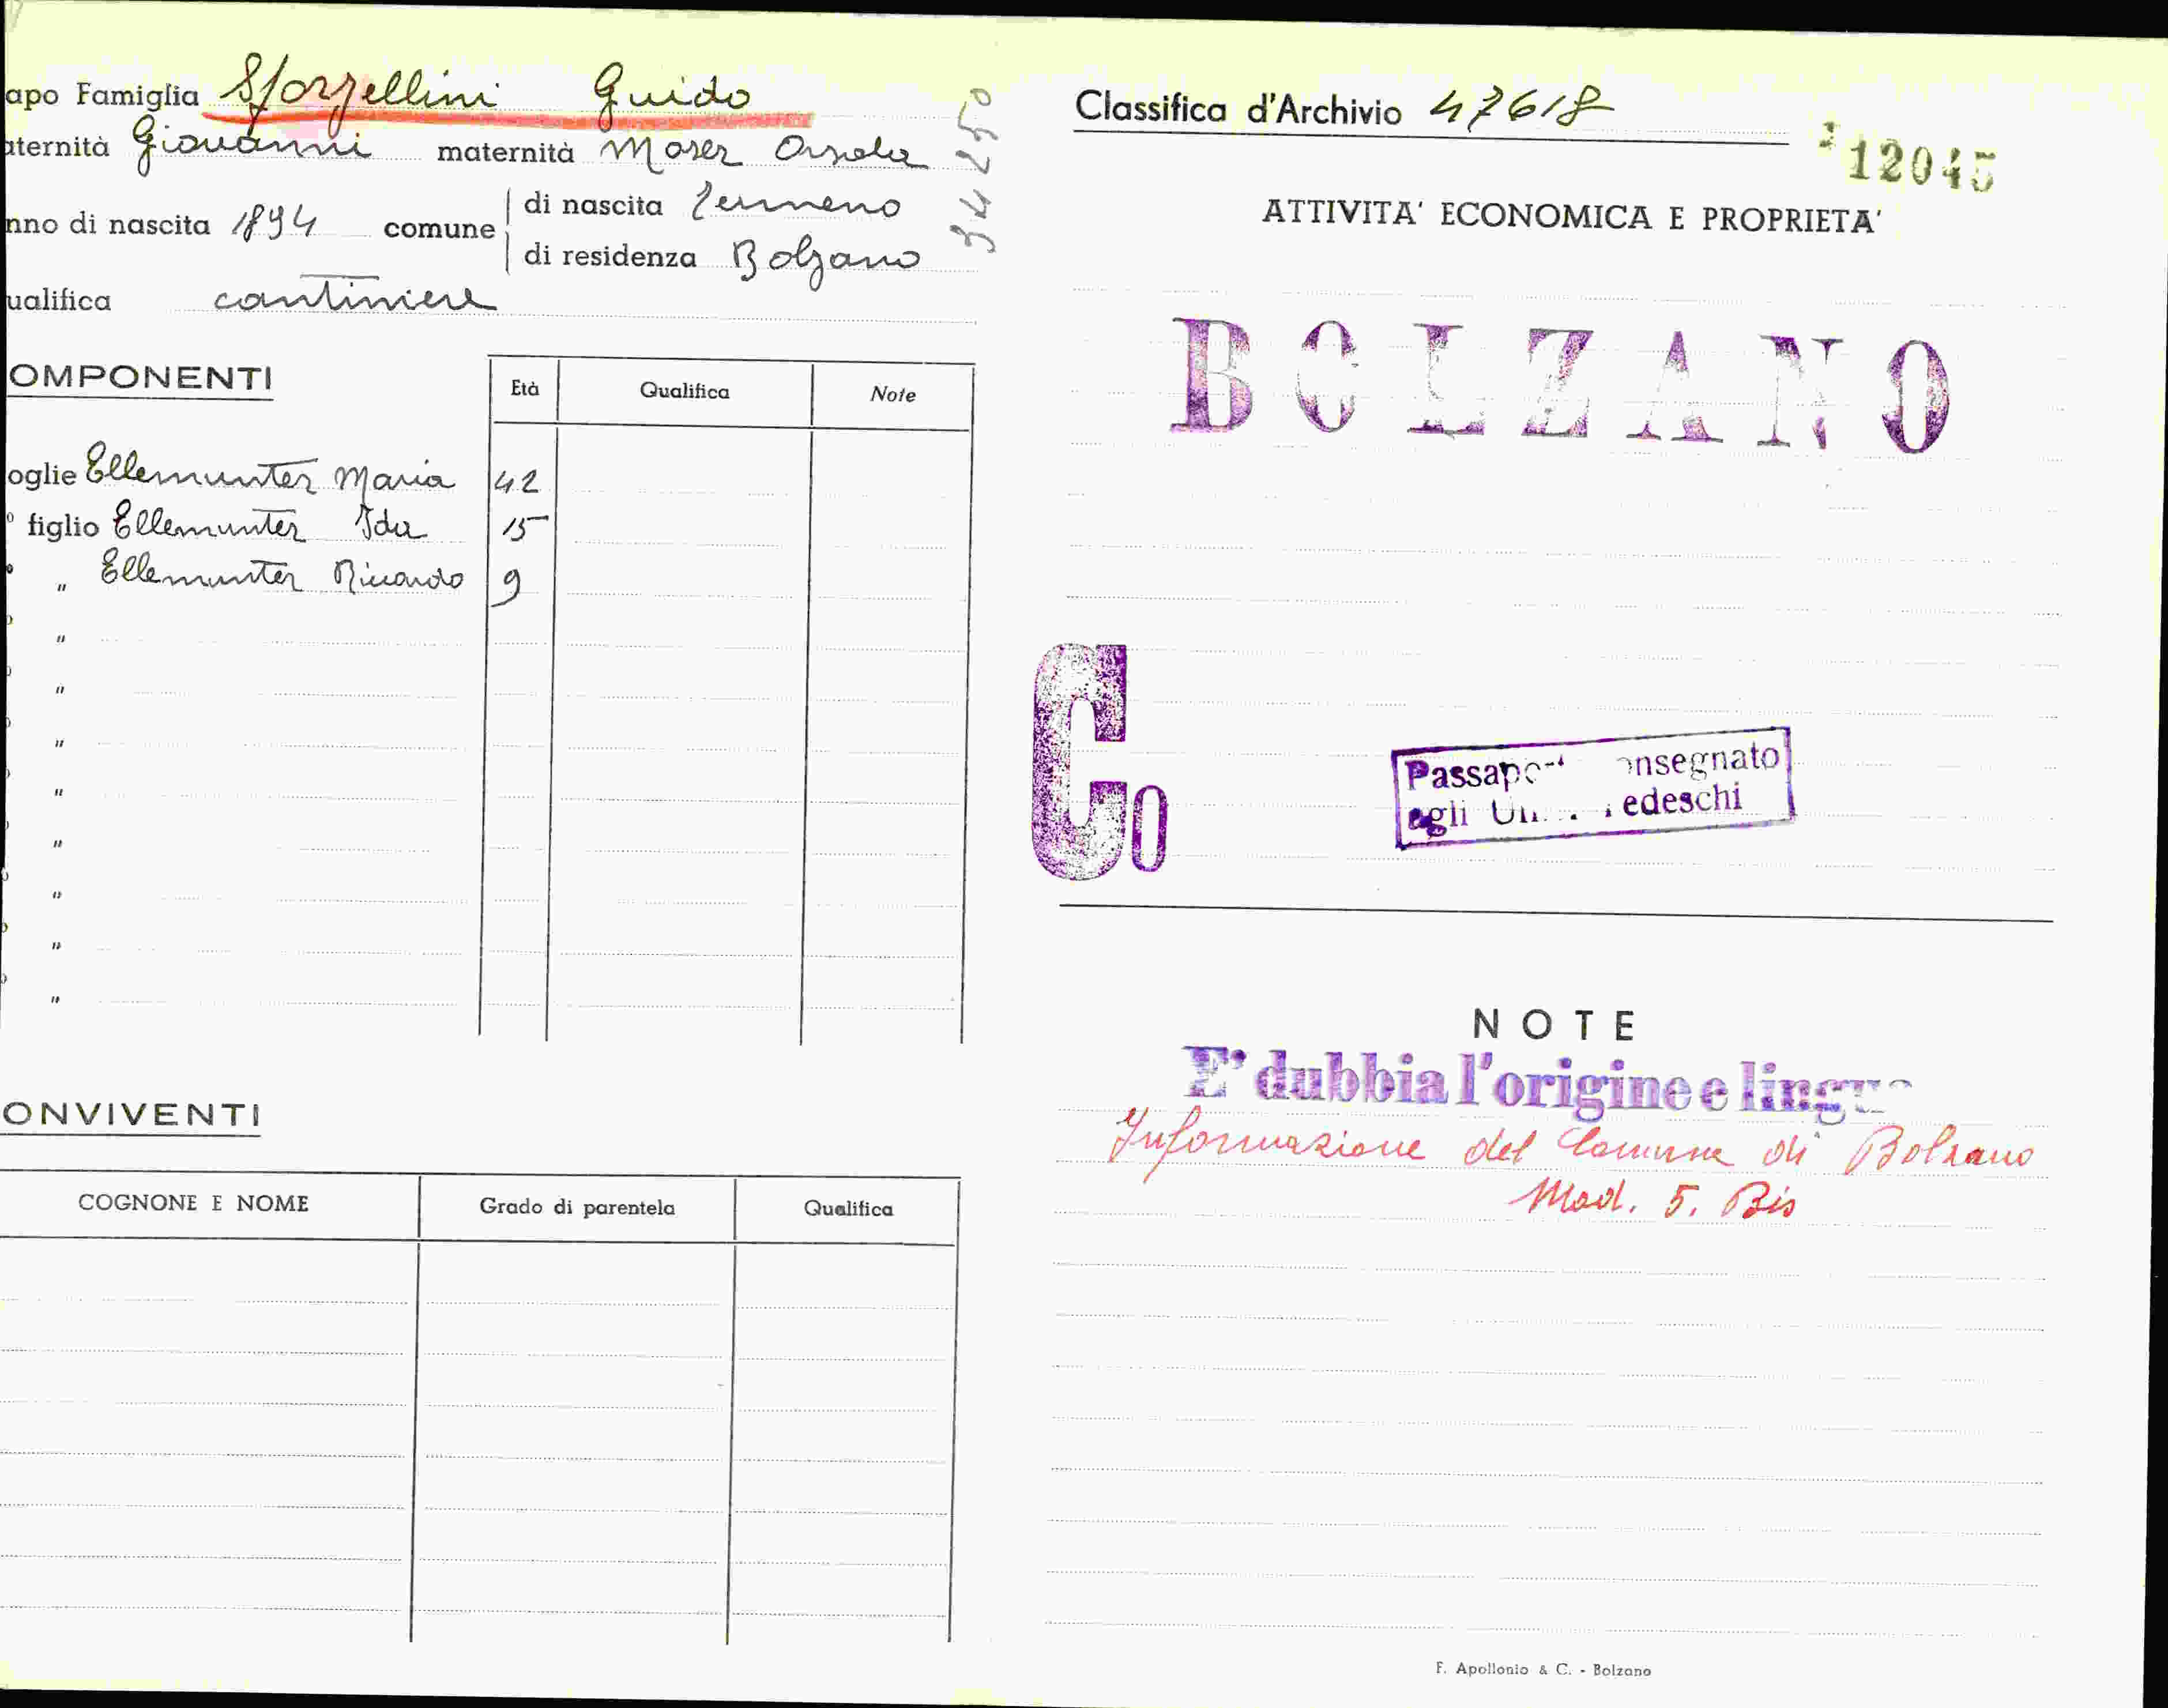 apo Famiglia Sforzellini Guido
aternità Giovanni maternità Moser Orsola
nno di nascita 1894 comune di nascita Termeno
di residenza Bolzano
ualifica cantiniere
342350
OMPONENTI
Età Qualifica Note
oglie Ellemunter Maria 42
° figlio Ellemunter Ida 15
° „ Ellemunter Riccardo 9
"
"
"
"
"
"
"
"
ONVIVENTI
COGNONE E NOME Grado di parentela Qualifica
Classifica d'Archivio 47618
12045
ATTIVITA' ECONOMICA E PROPRIETA'
BOLZANO
Co
onsegnato
agli edeschi
NOTE
E' dubbia l'origine e
Informazione del Comune di Bolzano
Mod. 5. Bis
F. Apollonio & C. - Bolzano